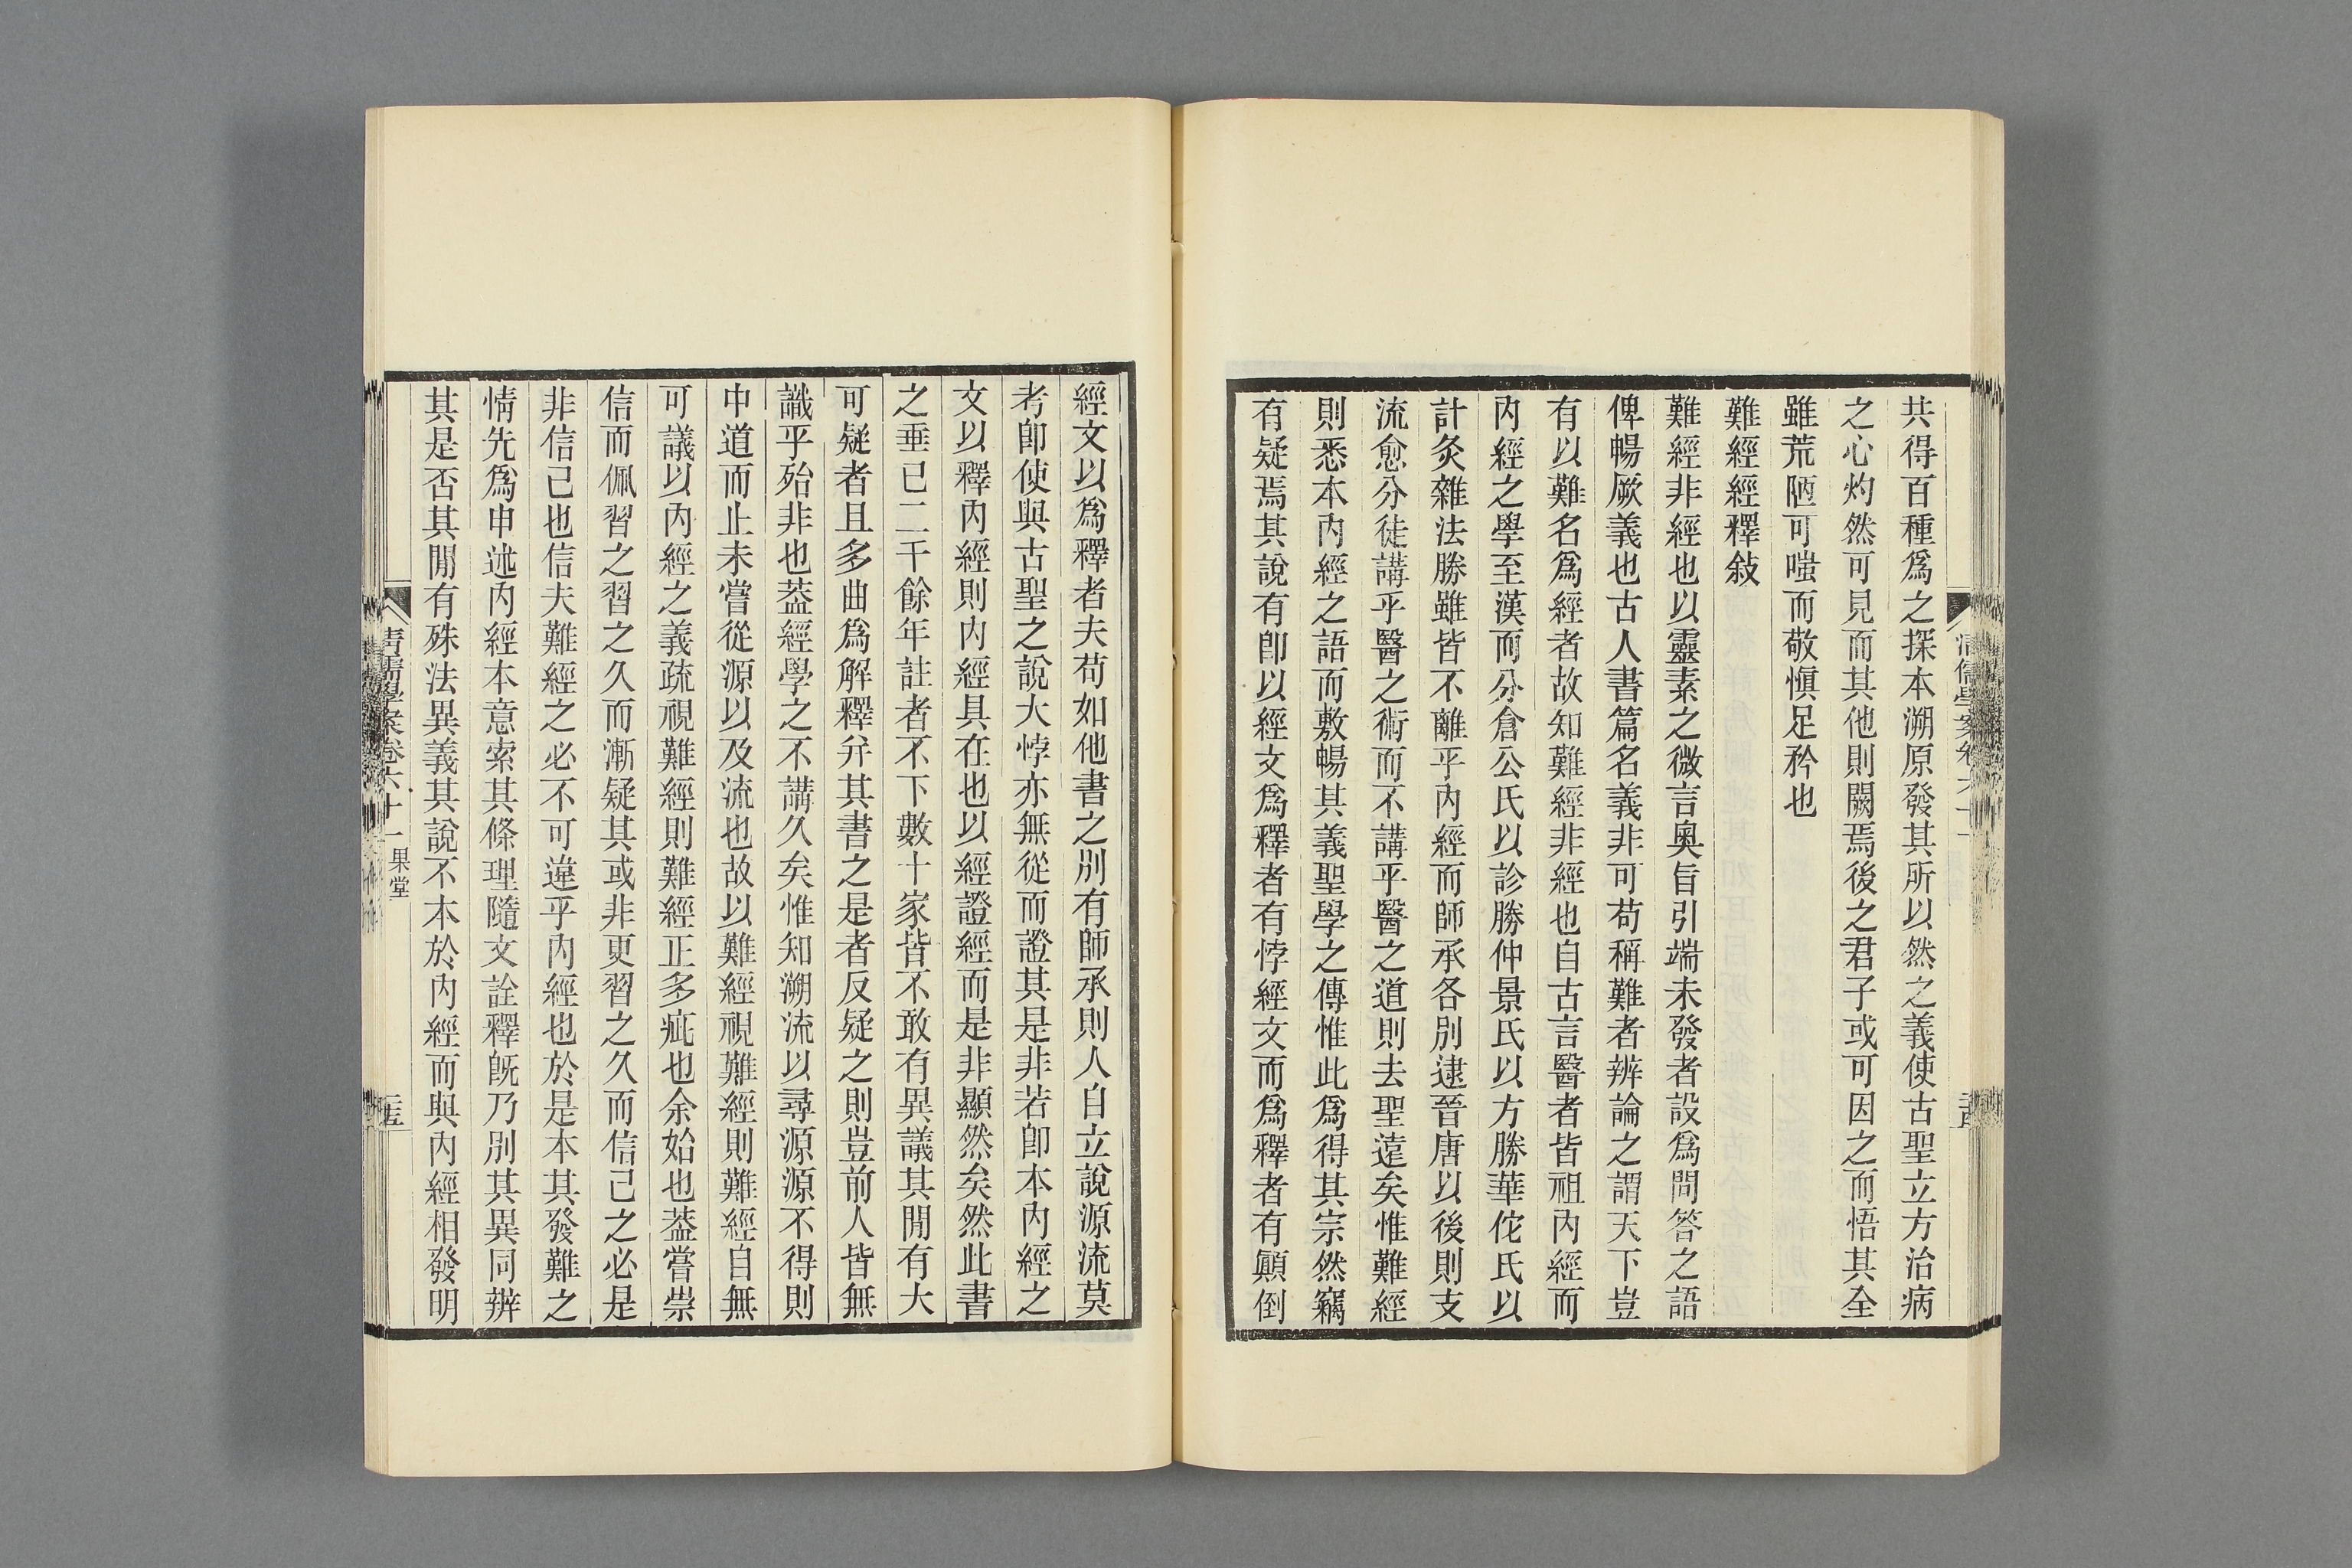 共得百種爲之探本溯原發其所以然之義使古聖立方治病
之心灼然可見而其他則闕焉後之君子或可因之而悟其全
雖荒陋可嗤而敬愼足矜也
難經經釋敍
難經非經也以靈素之微言奧旨引端未發者設爲問答之語
俾暢厥義也古人書篇名義非可苟稱難者辨論之謂天下豈
有以難名爲經者故知難經非經也自古言醫者皆祖內經而
內經之學至漢而分倉公氏以診勝仲景氏以方勝華佗氏以
計灸雜法勝雖皆不離乎內經而師承各別逮晉唐以後則支
流愈分徒講乎醫之術而不講乎醫之道則去聖遠矣惟難經
則悉本內經之語而敷暢其義聖學之傳惟此爲得其宗然竊
有疑焉其說有卽以經文爲釋者有悖經文而爲釋者有顚倒
經文以爲釋者夫苟如他書之別有師承則人自立說源流莫
考卽使與古聖之說大悖亦無從而證其是非若卽本內經之
文以釋內經則內經具在也以經證經而是非顯然矣然此書
之垂已二千餘年註者不下數十家皆不敢有異議其閒有大
可疑者且多曲爲解釋幷其書之是者反疑之則豈前人皆無
識乎殆非也葢經學之不講久矣惟知溯流以尋源源不得則
中道而止未嘗從源以及流也故以難經視難經則難經自無
可議以內經之義疏視難經則難經正多疵也余始也葢嘗崇
信而佩習之習之久而漸疑其或非更習之久而信己之必是
非信己也信夫難經之必不可違乎內經也於是本其發難之
情先爲申述內經本意索其條理隨文詮釋旣乃別其異同辨
其是否其閒有殊法異義其說不本於內經而與內經相發明
清儒學案卷六十一 果堂